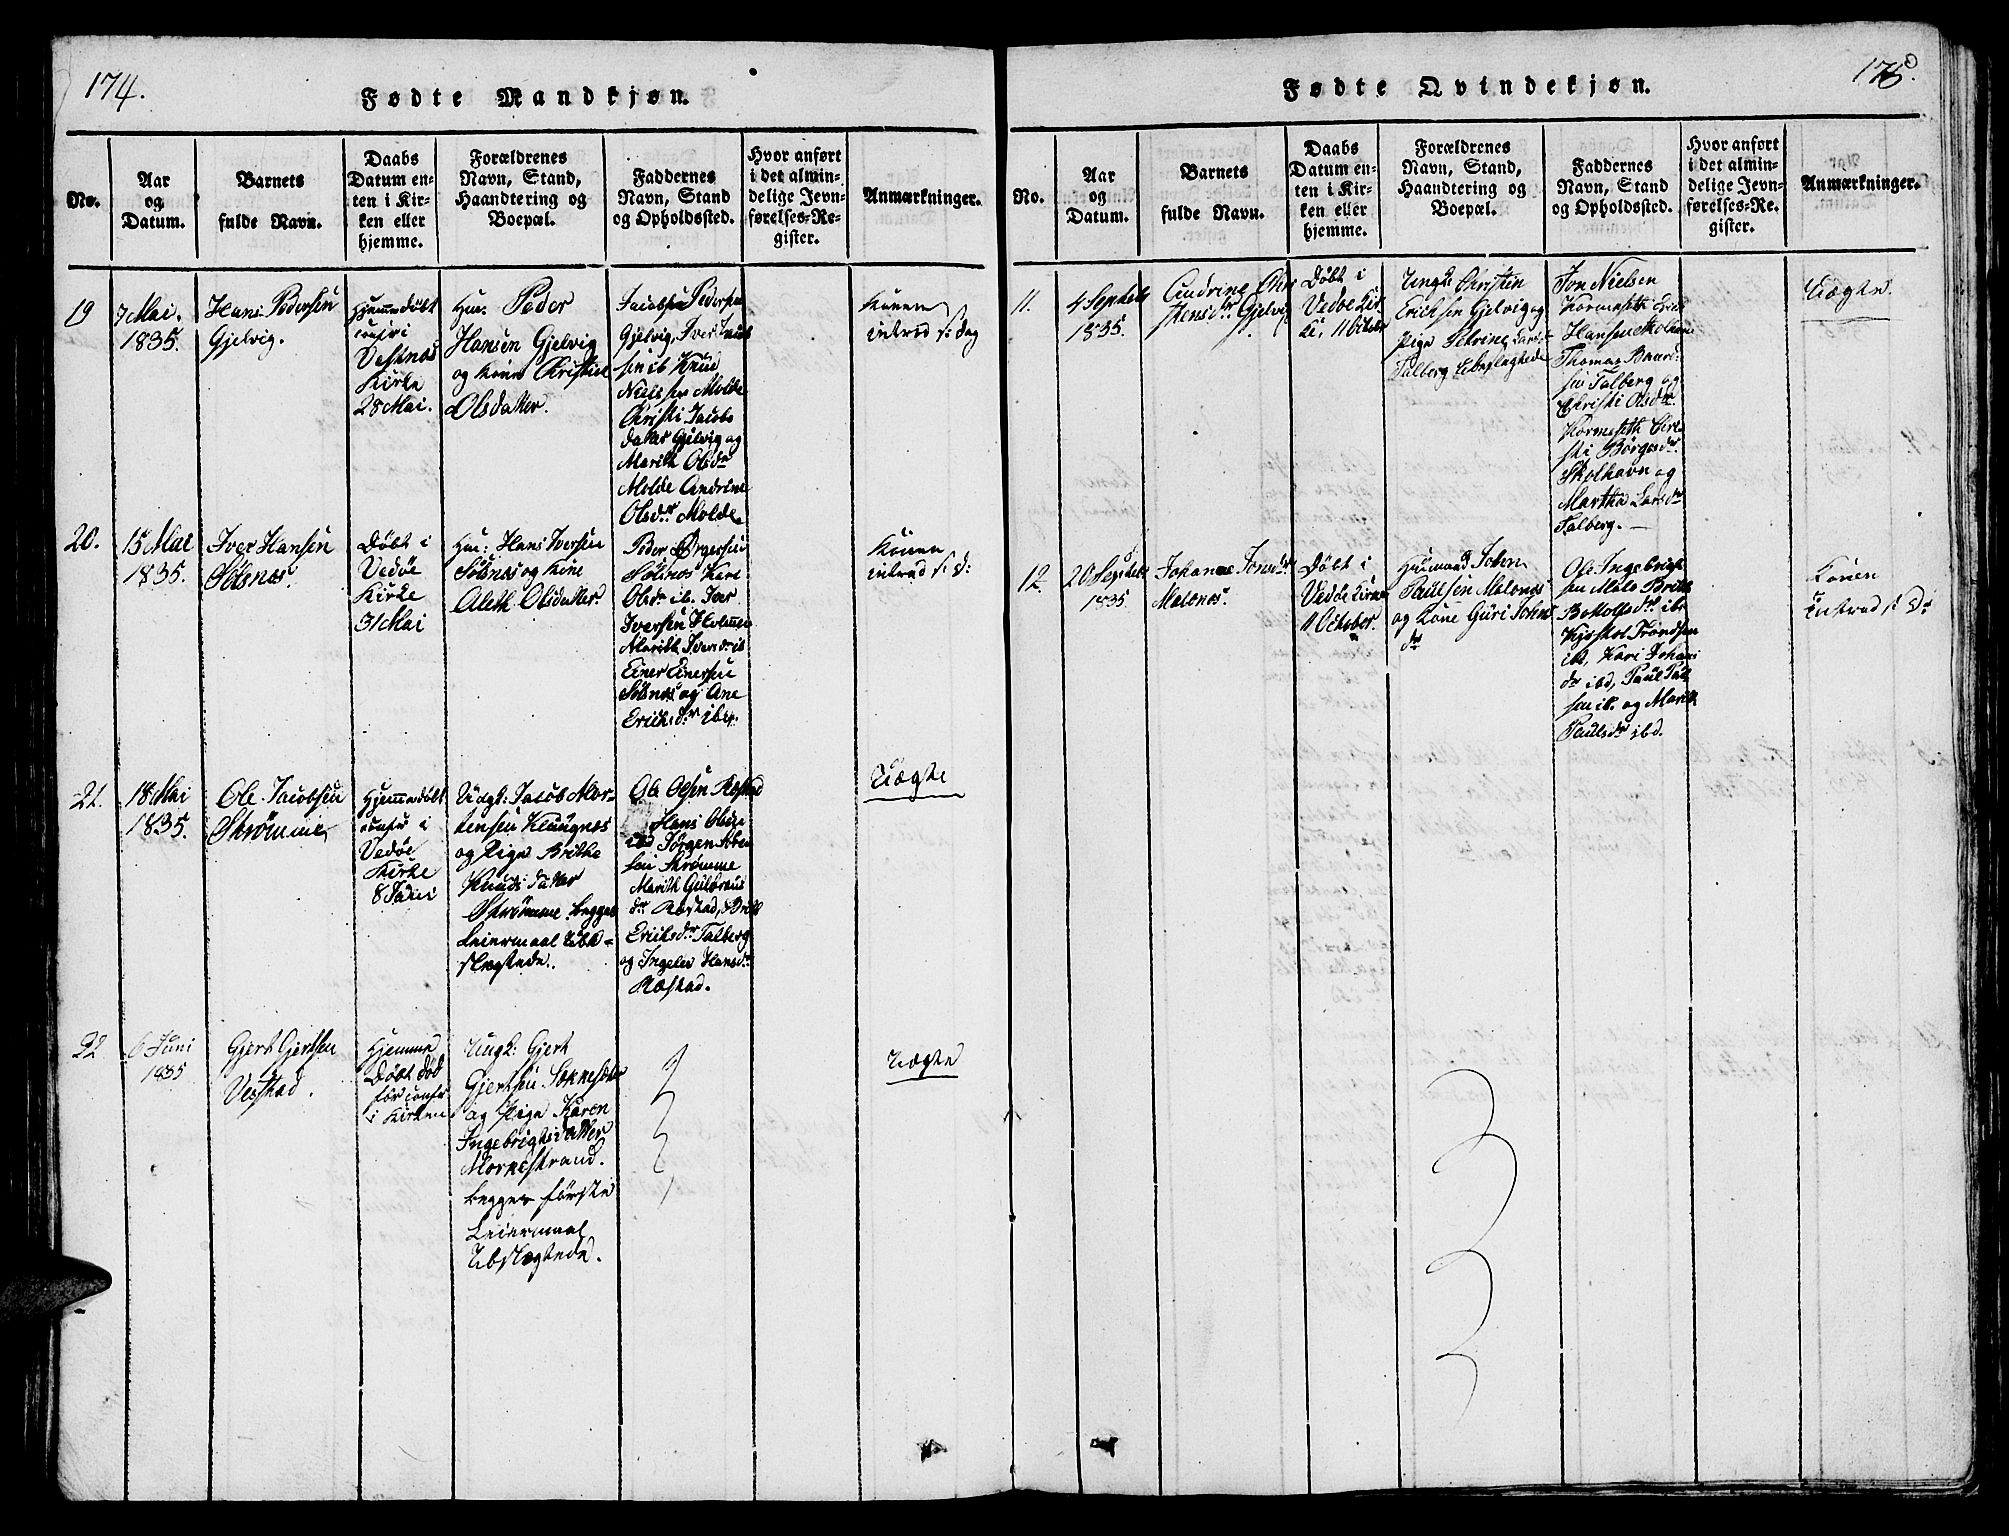 174.
Fødte Mandkjøn.
No.
Aar
og
Datum.
Barnets
fulde Navn.
Daabs
Datum en-
ten i Kir-
ken eller
hjemme.
Forældrenes
Navn, Stand,
Haandtering og
Boepæl.
Faddernes
Navn, Stand
og Opholdssted.
Hvor anført
i det almin-
delige Jevn-
førelses-Re-
gister.
Anmærkninger.
19
7 Mai.
1835.
Hans Pedersen
Gjelvig.
Hjemmedøbt
confr i
Vestnæs
Kirke
28 Mai.
Hm. Peder
Hansen Gjelvig
og kone Christie
Olsdatter.
Jacob Pedersen
Gjelvig, Iver Knud
sen ib Knud
Nielsen Molde
Christi Jacobs
datter Gjelvig og
Marith Olsdr
Molde Andrine
Olsdr Molde
Konen
introd s: Dag
20.
15 Mai
1835.
Iver Hansen
Sølsnæs.
Døbt i
Vedøe
Kirke
31 Mai
Hm: Hans Iversen
Sølsnæs og kone
Aleth Olsdatter.
Peder
Sølsnæs Kari
Olsdr ib. Iver
Iversen
Marith Iversdr ib
Einer Einersen
Sølsnæs og Ane
Erichsdr ibd.
Konen
introd s: D:
21.
18 Mai
1835.
Ole Jacobsen
Strømme
Hjemmedøbt
confr i
Vedøe
Kirke
8 Juni
Ungk: Jacob Mor-
tensen Klungnæs
og Pige Brithe
Knudsdatter
Strømme begges
Leiermaal Ube-
slægtede.
Ole Olsen Røstad
Hans Olsen
ibd Jørgen
sen Strømme
Marith
dr Røstad, Brith
Erichsdr Talberg
og Ingeler Hansdr
Røstad.
Uægte
22
6 Juni
1835
Gjert Gjertsen
Vestad.
Hjemme
Døbt død
før confr
i Kirken
Ungk: Gjert
Gjertsen
og Pige Karen
Ingebrigtsdatter
Mornestrand.
begges første
Leiermaal
Ubeslægtede.
Uægte
175.
Fødte Qvindekjøn.
No.
Aar
og
Datum.
Barnets
fulde Navn.
Daabs
Datum en-
ten i Kir-
ken eller
hjemme.
Forældrenes
Navn, Stand,
Haandtering og
Boepæl.
Faddernes
Navn, Stand
og Opholdssted.
Hvor anført
i det almin-
delige Jevn-
førelses-Re-
gister.
Anmærkninger.
11.
4 Septeb
1835.
Andrine Chr
stensdr Gjelvig
Døbt i
Vedøe Kir
ke, 11 October
Ungk Christen
Erichsen Gjelvig og
Pige Sitrine Larsdr
Talberg Ubeslægtede
Jon Nielsen
Kormesth Erich
Hansen
Thomas Baard-
sen Talberg og
Christi Olsdr
Kormesth
Børgesdr
Skolhavn og
Martha Larsdr
Talberg.
Uægte.
12.
20 Septebr
1835.
Johanne Jonsdr
Malones.
Døbt i
Vedøe Kirke
11 October.
Huusmand John
Paulsen Malones
og kone Guri Johns
dr
Ole Ingebrigt
sen Malo Brith
Botolfsdr ib.
Trondsen
ib, Kari Johans
dr ibd, Paul Paul
sen ib. og Marith
Paulsdr ibd.
Konen
introd s: D: